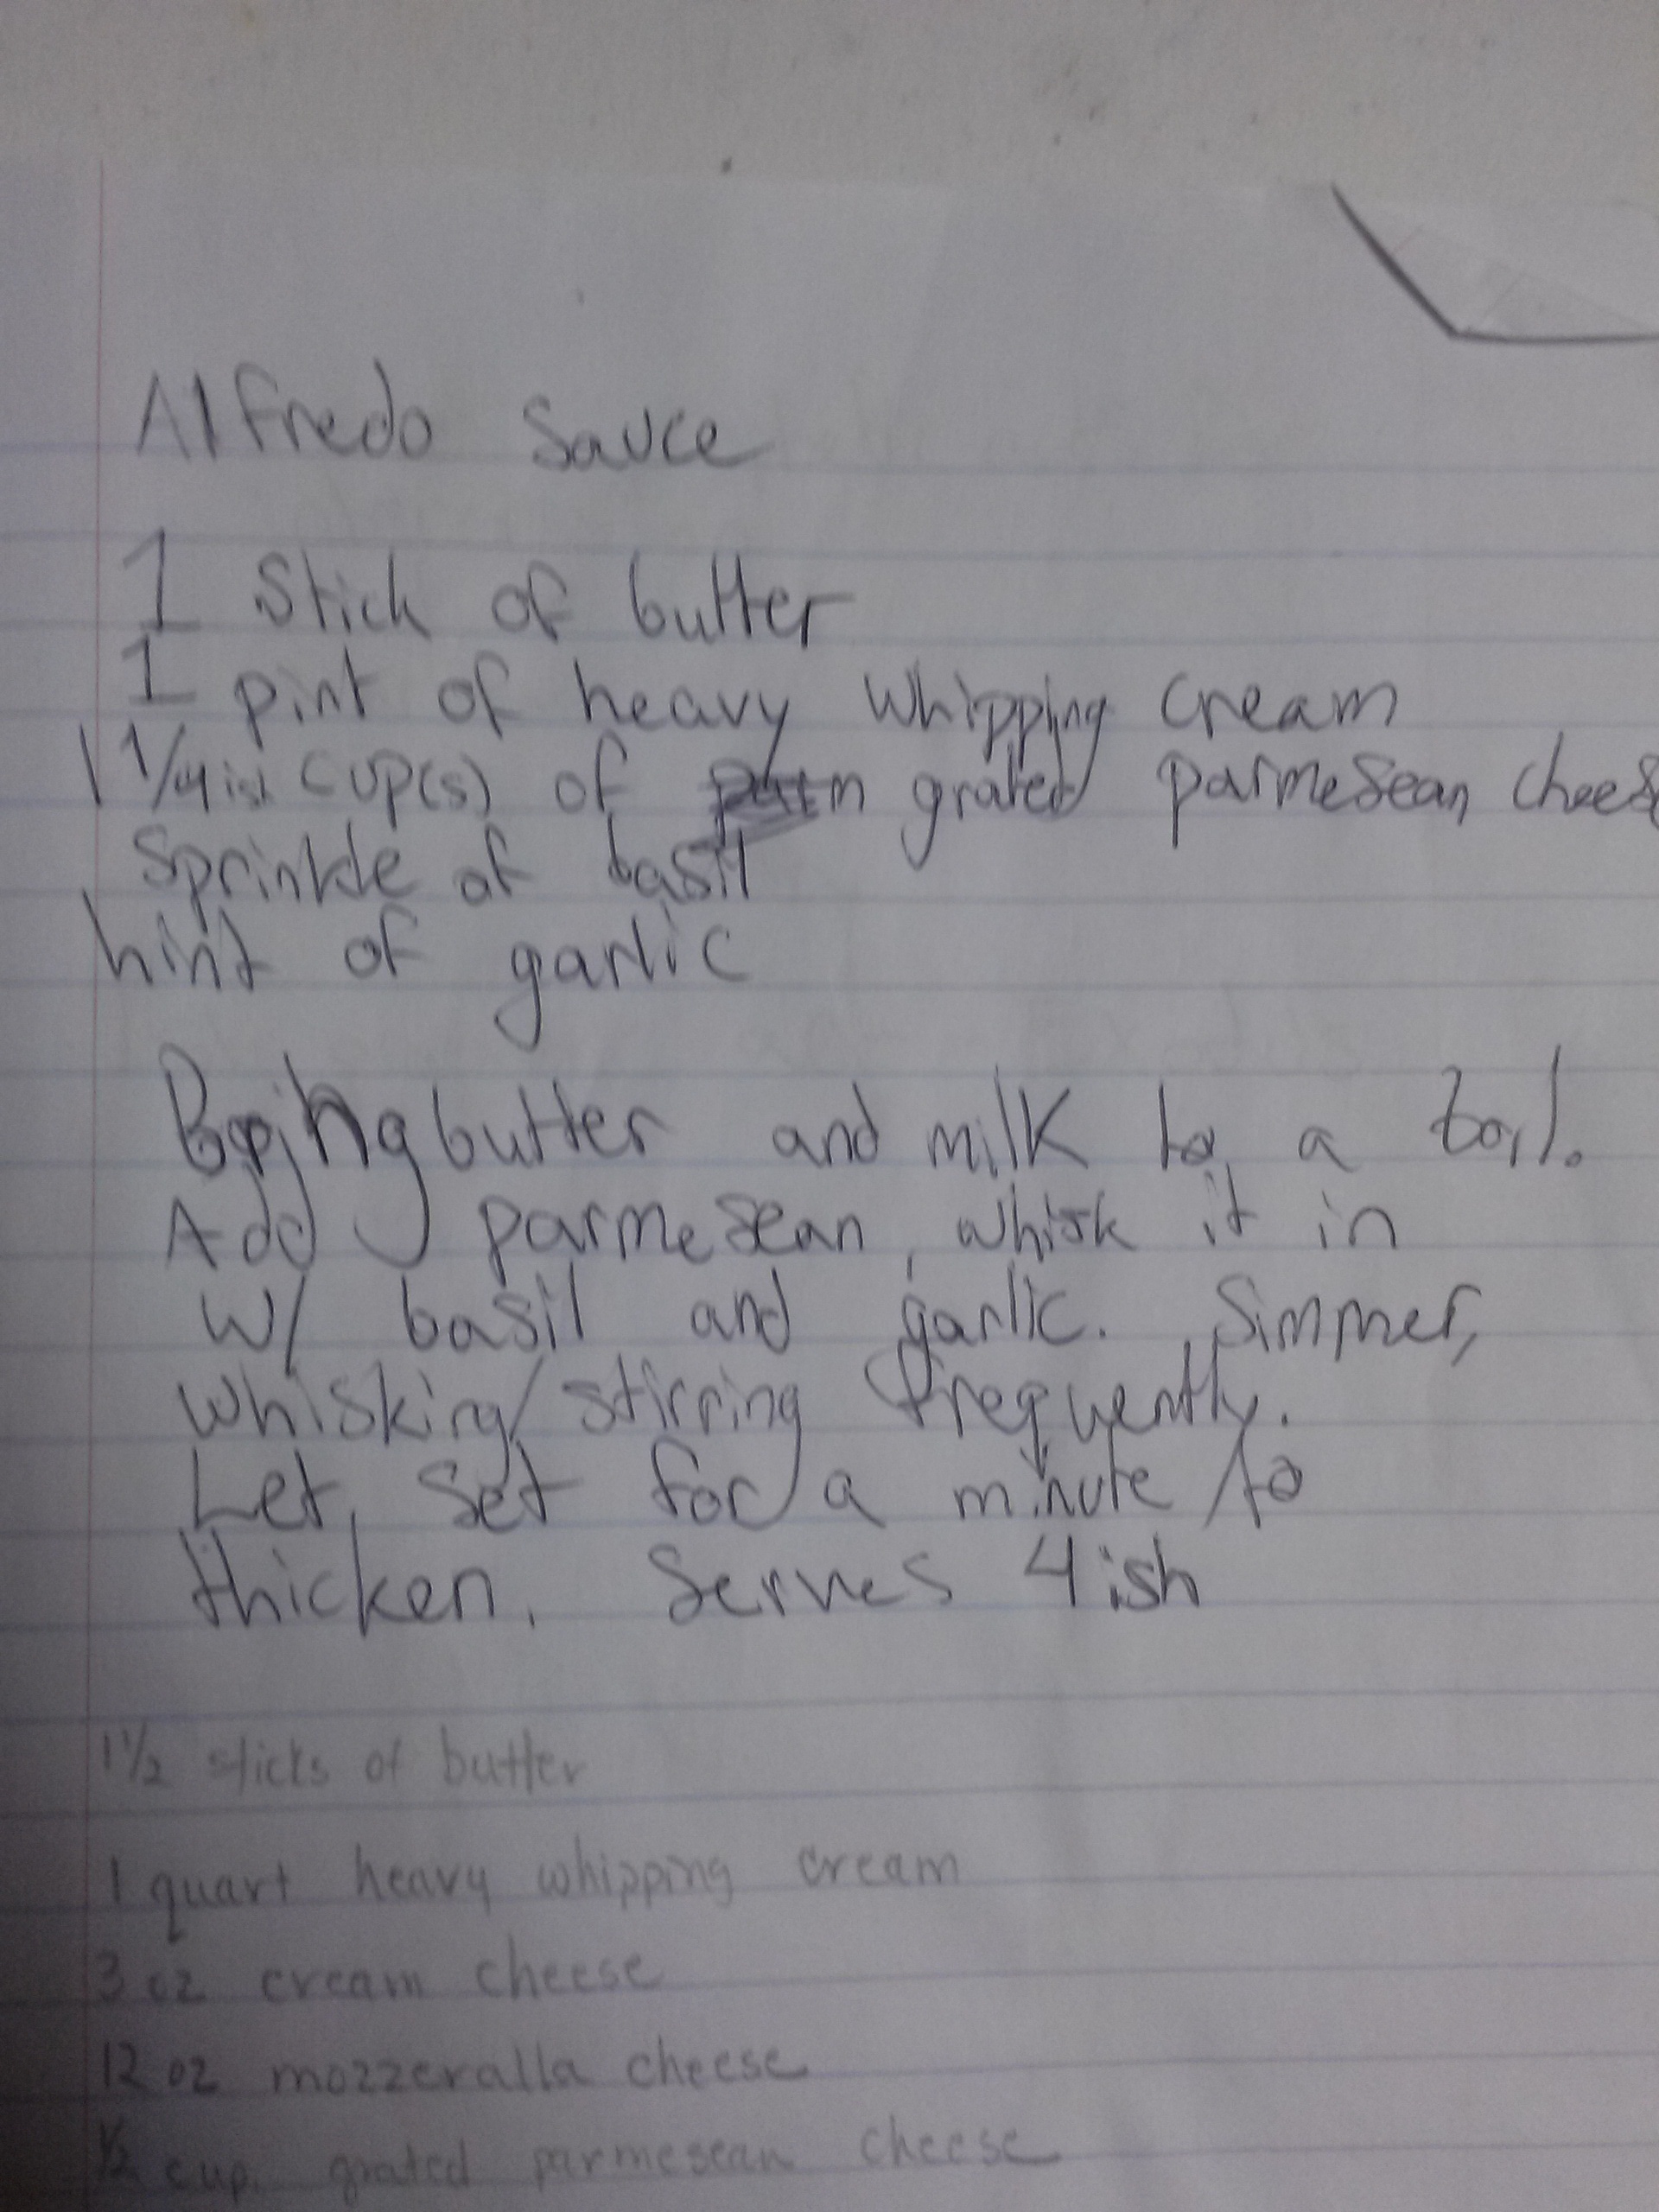 Alfredo Sauce
1 Stick of butter
1 pint of heavy whipping cream
1 1/4ish cup(s) of grated parmesean chees
Sprinkle of basil
hint of garlic
Bring butter and milk to a boil.
Add parmesean, whisk it in
w/ basil and garlic. Simmer,
whisking/stirring frequently.
Let set for a minute to
thicken. Serves 4ish
1 1/2 sticks of butter
1 quart heavy whipping cream
3 oz cream cheese
12 oz mozzeralla cheese
1/2 cup. grated parmesean cheese